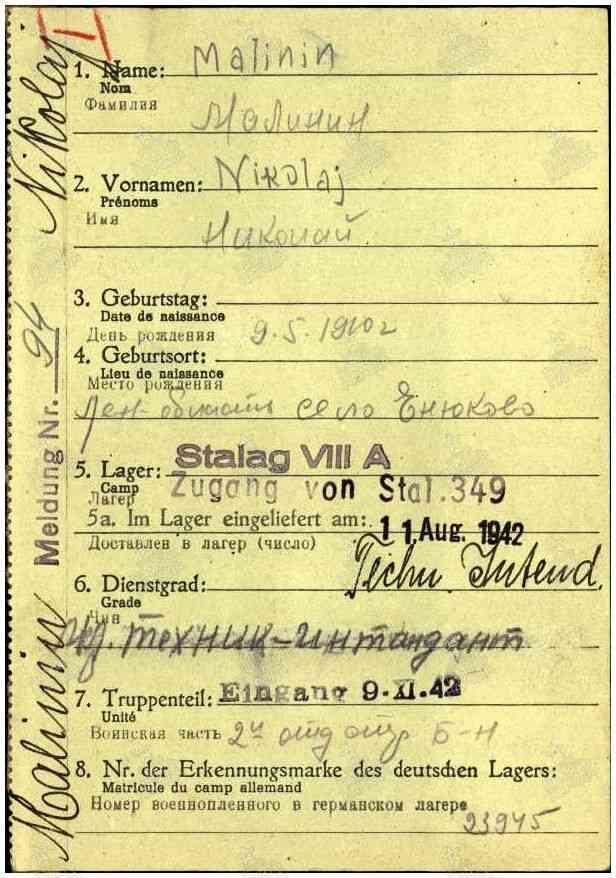 Malinin Nikolaj
Meldung Nr. 94
I
1. Name: Malinin
Nom
Фамилия
Малинин
2. Vornamen: Nikolaj
Prénoms
Имя
Николай
3. Geburtstag:
Date de naissance
День рождения 9.5.1910г
4. Geburtsort:
Lieu de naissance
Место рождения
Лен. область село Енюково
Stalag VIII A
5. Lager:
Camp
Лагер
Zugang von Stal. 349
5a. Im Lager eingeliefert am: 11. Aug. 1942
Доставлен в лагер (число)
Techn. Intend.
6. Dienstgrad:
Grade
Чин
техник-интандант
7. Truppenteil: Eingang 9.XI.42
Unité
Воинская часть 2й отд отр Б-Н
8. Nr. der Erkennungsmarke des deutschen Lagers:
Matricule du camp allemand
Номер военнопленного в германском лагере
23945